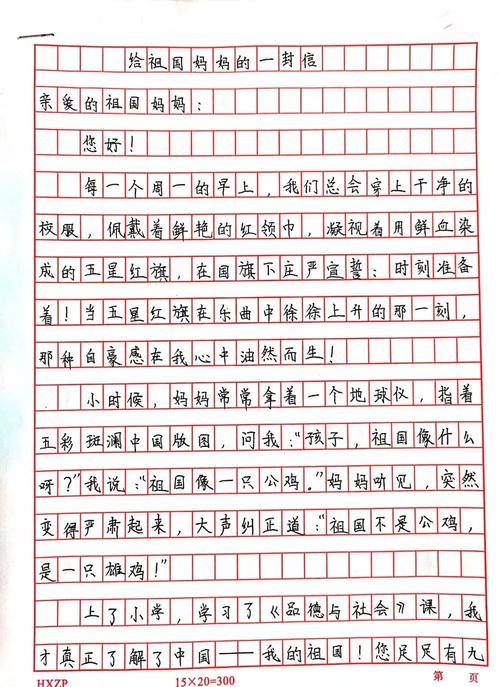 给祖国妈妈的一封信
亲爱的祖国妈妈：
您好！
每一个周一的早上，我们总会穿上干净的
校服，佩戴着鲜艳的红领巾，凝视着用鲜血染
成的五星红旗，在国旗下庄严宣誓：时刻准备
着！当五星红旗在乐曲中徐徐上升的那一刻，
那种自豪感在我心中油然而生！
小时候，妈妈常常拿着一个地球仪，指着
五彩斑澜中国版图，问我：“孩子，祖国像什么
呀？”我说：“祖国像一只公鸡。”妈妈听见，突然
变得严肃起来，大声纠正道：“祖国不是公鸡，
是一只雄鸡！”
上了小学，学习了《品德与社会》课，我
才真正了解了中国——我的祖国！您足足有九
HXZP 15×20=300 第 页